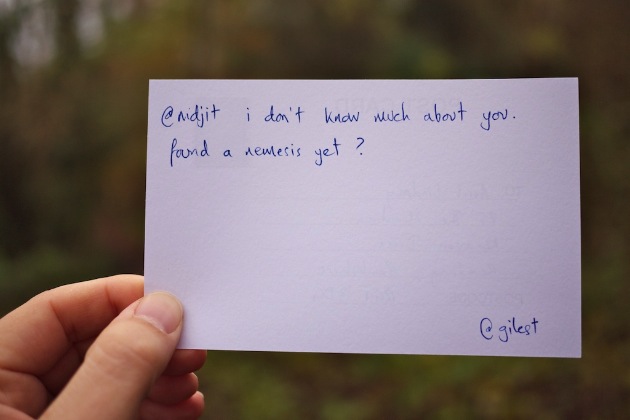 @nidjit i don't know much about you.
found a nemesis yet ?
@gilest